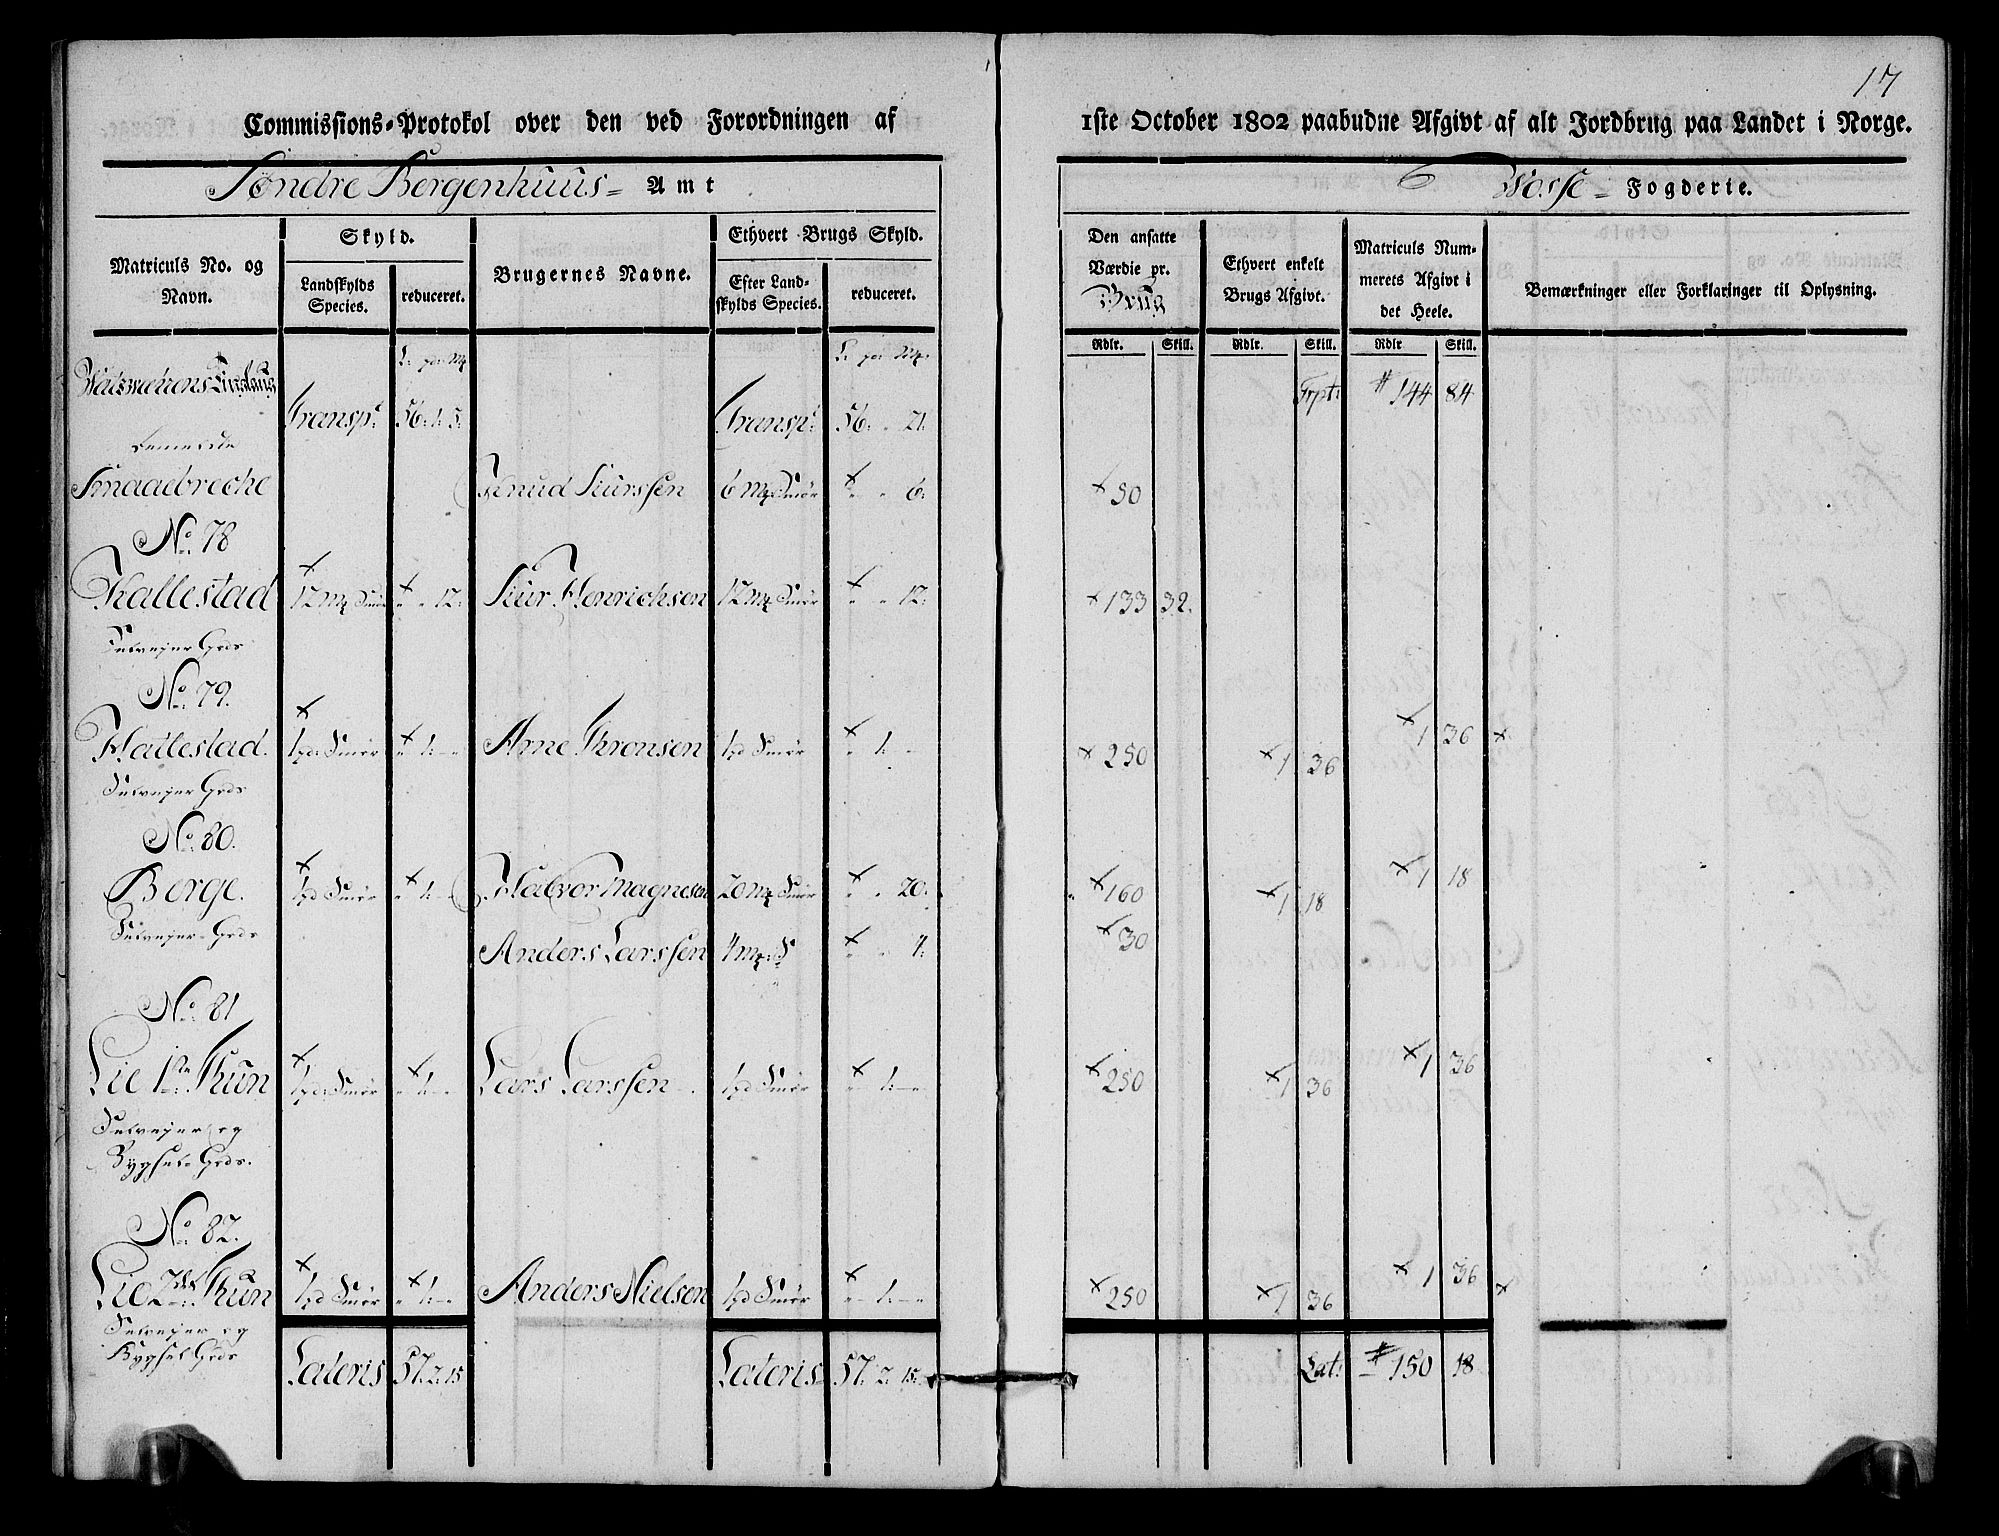 17
Commissions-Protokol over den ved Forordningen af 1ste October 1802 paabudne Afgivt af alt Jordbrug paa Landet i Norge.
Søndre Bergenhuus= Amt
Wosse= Fogderie.
Matriculs No. og Navn.
Skyld.
Landskylds Species.
reduceret.
Brugernes Navne.
Ethvert Brugs Skyld.
Efter Landskylds Species.
reduceret.
Den ansatte Værdie pr. Brug
Ethvert enkelt Brugs Afgivt.
Matriculs Nummerets Afgivt i det Heele.
Bemærkninger eller Forklaringer til Oplysning.
Rdlr. Skill. Rdlr. Skill. Rdlr Skill.
Transpt: 56:1:5: Transpt: 56: " 21: Trpt: 144 84
Smaaebreche Knud Siurssen 6 mk Smør " " 6: 50
No. 78
Kallestad 12 mk Smør " " 12: Siur Henrichsen 12 mk Smør " " 12: 133 32.
Selvejer Gods
No. 79.
Hallestad. 1 pd: Smør " 1: " Arne Thronsen 1 pd Smør " 1: - 250 1 36 1 36
Selvejer Gods
No. 80.
Berge. 1 pd Smør " 1: " Halvor Magnesen 20 mk Smør " " 20: 160 1 18 1 18
Selvejer Gods
Anders Larssen 4 mk: S " " 4: 30
No. 81
Lie 1ste Thun 1 pd: Smør " 1: " Lars Larssen 1 pd Smør " 1: " 250 1 36 1 36
Selvejer og
Bygsel Gods.
No. 82.
Lie 2det Thun 1 pd Smør " 1: " Anders Nielsen 1 pd Smør " 1: " 250 1 36 1 36
Selvejer og
Bygsel Gods
Lateris 57: 2: 15 Lateris 57: 2: 15: Lat: 150 18